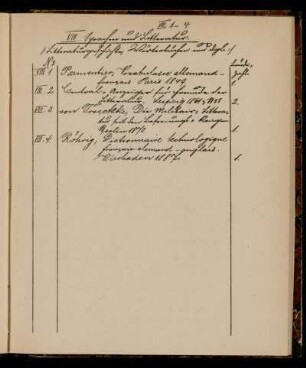 VIII 1-4
VIII. Sprachen und Litteratur.
(Litteraturgeschichte, Wörterbücher und dergl.)
No. Bände-
zahl.
VIII 1 Parmentier, Vocabulaire allemand-
français Paris 1849. 1.
VIII. 2 Central-Anzeiger für Freunde der
Litteratur Leipzig 2.
VIII. 3 von Troschke, Die Militair-Litteratur
seit den Befreiungs-Kriegen
Berlin 1870 1
VIII. 4 Röhrig, Dictionnaire technologique
français-allemand-anglais.
Wiesbaden 1887. 1.